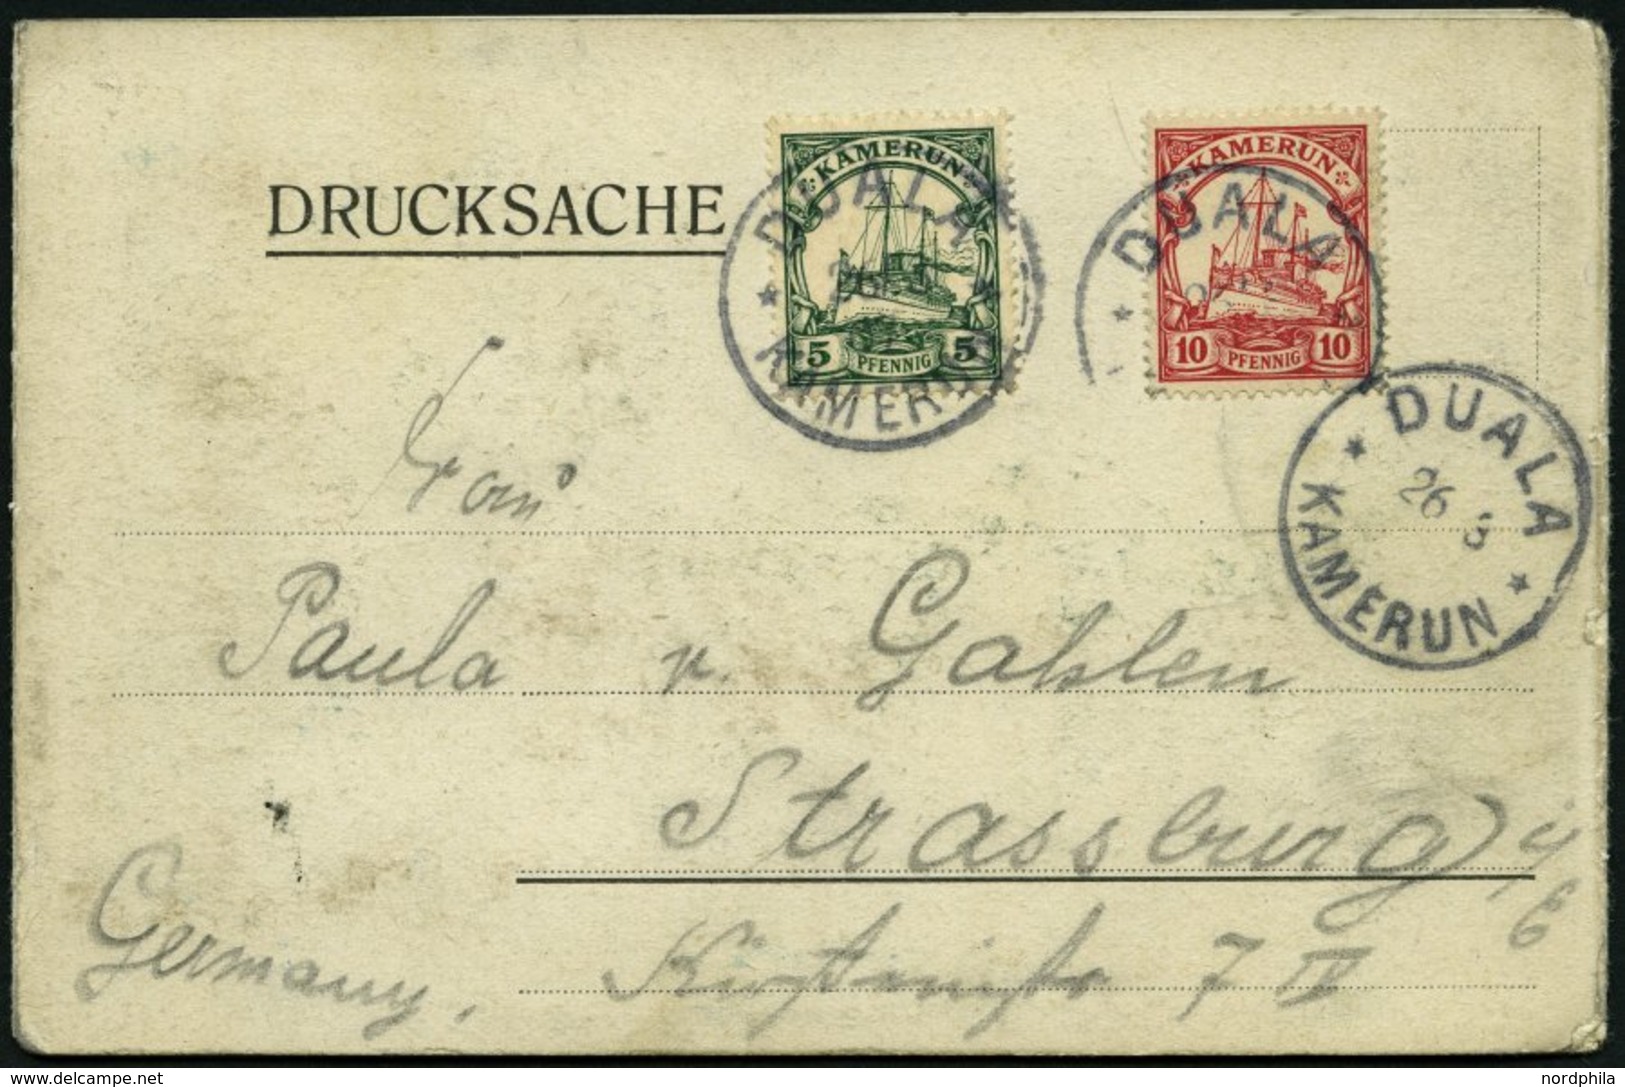 DRUCKSACHE
KAMERUN
5 PFENNIG 5
KAMERUN
10 PFENNIG 10
DUALA
KAMERUN
DUALA
DUALA
26 3
KAMERUN
Frau
Paula v. Gahlen
Strassburg i/E
Germany. 7 IV
www.delcampe.net
nordphila